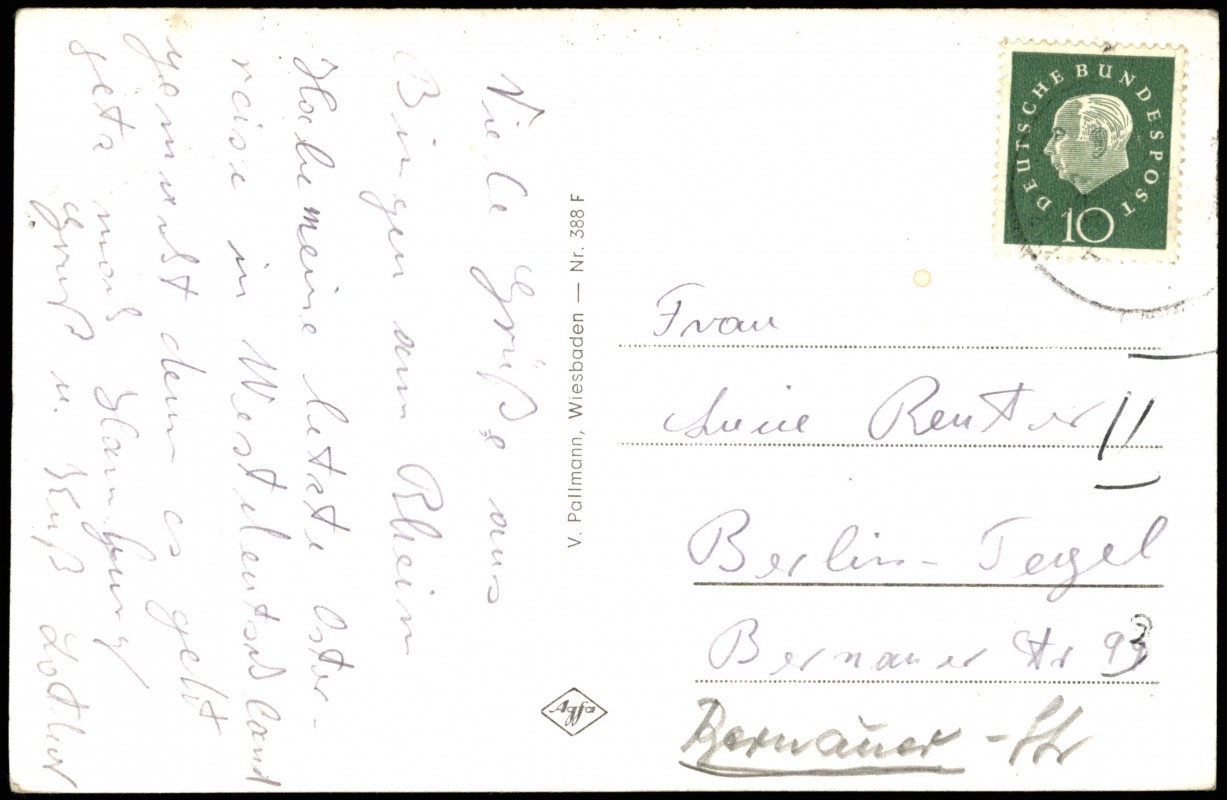 Viele Grüße aus
Bingen am Rhein
Habe meine letzte Oster-
reise in Westdeutschland
gemacht denn es geht
jetz nach Hamburg
Gruß u. Kuß Lothar
V. Pallmann, Wiesbaden — Nr. 388 F
Agfa
DEUTSCHE BUNDESPOST
10
Frau
Reuter
Berlin-Tegel
Bernauer Str 93
Bernauer-Str